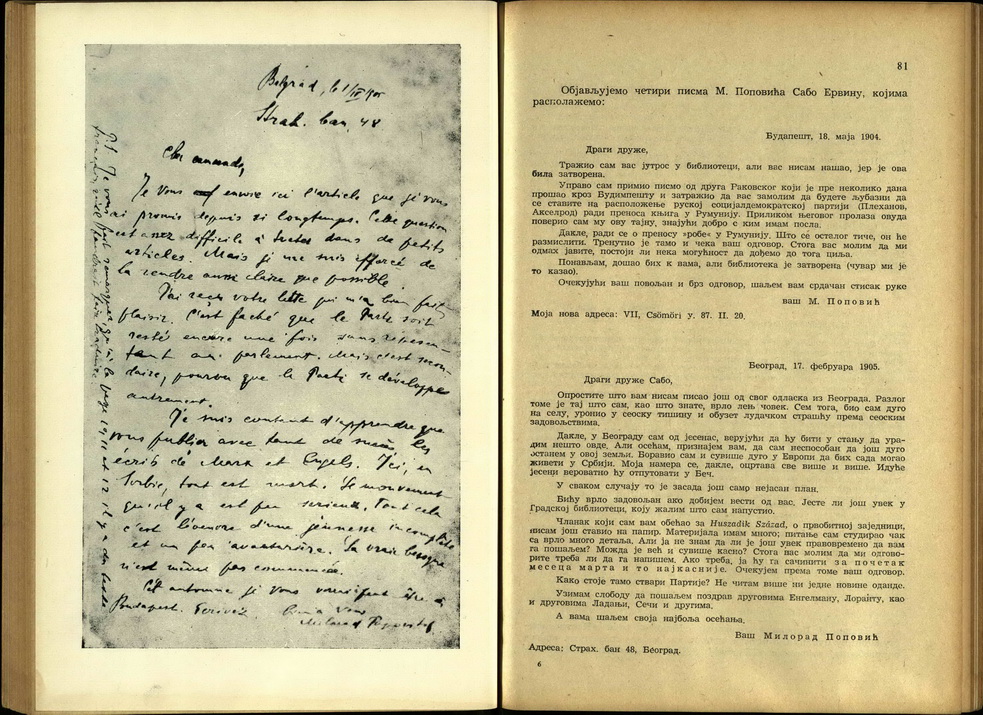 Belgrad, le 1/IV 905
Strah. ban, 48
Cher camarade,
Je vous envoie ici l'article que je vous
ai promis depuis si longtemps. Cette question
est assez difficile à traiter dans de petits
articles. Mais je me suis efforcé de
la rendre aussi claire que possible.
J'ai reçu votre lettre qui m'a bien fait
plaisir. C'est faché que le Parti soit
resté encore une fois sans représen-
tant au parlement. Mais c'est secon-
daire, pourvu que le Parti se développe
autrement.
Je suis content d'apprendre que
vous publiez avec tant de succès les
écrits de Marx et Engels. Ici, en
Serbie, tout est mort. Le mouvement
qu'il y a est peu sérieux. Tout cela
c'est l'oeuvre d'une jeunesse incomplète
et un peu aventurière. La vraie besogne
n'est même pas commencée.
Cet automne je vous
Budapest. Écrivez. 
Milorad Popovitch
81
Објављујемо четири писма М. Поповића Сабо Ервину, којима
располажемо:
Будапешт, 18. маја 1904.
Драги друже,
Тражио сам вас јутрос у библиотеци, али вас нисам нашао, јер је ова
била затворена.
Управо сам примио писмо од друга Раковског који је пре неколико дана
прошао кроз Будимпешту и затражио да вас замолим да будете љубазни да
се ставите на расположење руској социјалдемократској партији (Плеханов,
Акселрод) ради преноса књига у Румунију. Приликом његовог пролаза овуда
поверио сам му ову тајну, знајући добро с ким имам посла.
Дакле, ради се о преносу »робе« у Румунију. Што се осталог тиче, он ће
размислити. Тренутно је тамо и чека ваш одговор. Стога вас молим да ми
одмах јавите, постоји ли нека могућност да дођемо до тога циља.
Понављам, дошао бих к вама, али библиотека је затворена (чувар ми је
то казао).
Очекујући ваш повољан и брз одговор, шаљем вам срдачан стисак руке
ваш М. Поповић
Моја нова адреса: VII, Csömöri у. 87. II. 20.
Београд, 17. фебруара 1905.
Драги друже Сабо,
Опростите што вам нисам писао још од свог одласка из Београда. Разлог
томе је тај што сам, као што знате, врло лењ човек. Сем тога, био сам дуго
на селу, уронио у сеоску тишину и обузет лудачком страшћу према сеоским
задовољствима.
Дакле, у Београду сам од јесенас, верујући да ћу бити у стању да ура-
дим нешто овде. Али осећам, признајем вам, да сам неспособан да још дуго
останем у овој земљи. Боравио сам и сувише дуго у Европи да бих сада могао
живети у Србији. Моја намера се, дакле, оцртава све више и више. Идуће
јесени вероватно ћу отпутовати у Беч.
У сваком случају то је засада још само нејасан план.
Бићу врло задовољан ако добијем вести од вас. Јесте ли још увек у
Градској библиотеци, коју жалим што сам напустио.
Чланак који сам вам обећао за Huszadik Század, о првобитној заједници,
нисам још ставио на папир. Материјала имам много; питање сам студирао чак
са врло много детаља. Али ја не знам да ли је још увек правовремено да вам
га пошаљем? Можда је већ и сувише касно? Стога вас молим да ми одгово-
рите треба ли да га напишем. Ако треба, ја ћу га сачинити за почетак
месеца марта и то најкасније. Очекујем према томе ваш одговор.
Како стоје тамо ствари Партије? Не читам више ни једне новине оданде.
Узимам слободу да пошаљем поздрав друговима Енгелману, Лоранту, као
и друговима Ладањи, Сечи и другима.
А вама шаљем своја најбоља осећања.
Ваш Милорад Поповић
Адреса: Страх. бан 48, Београд.
6